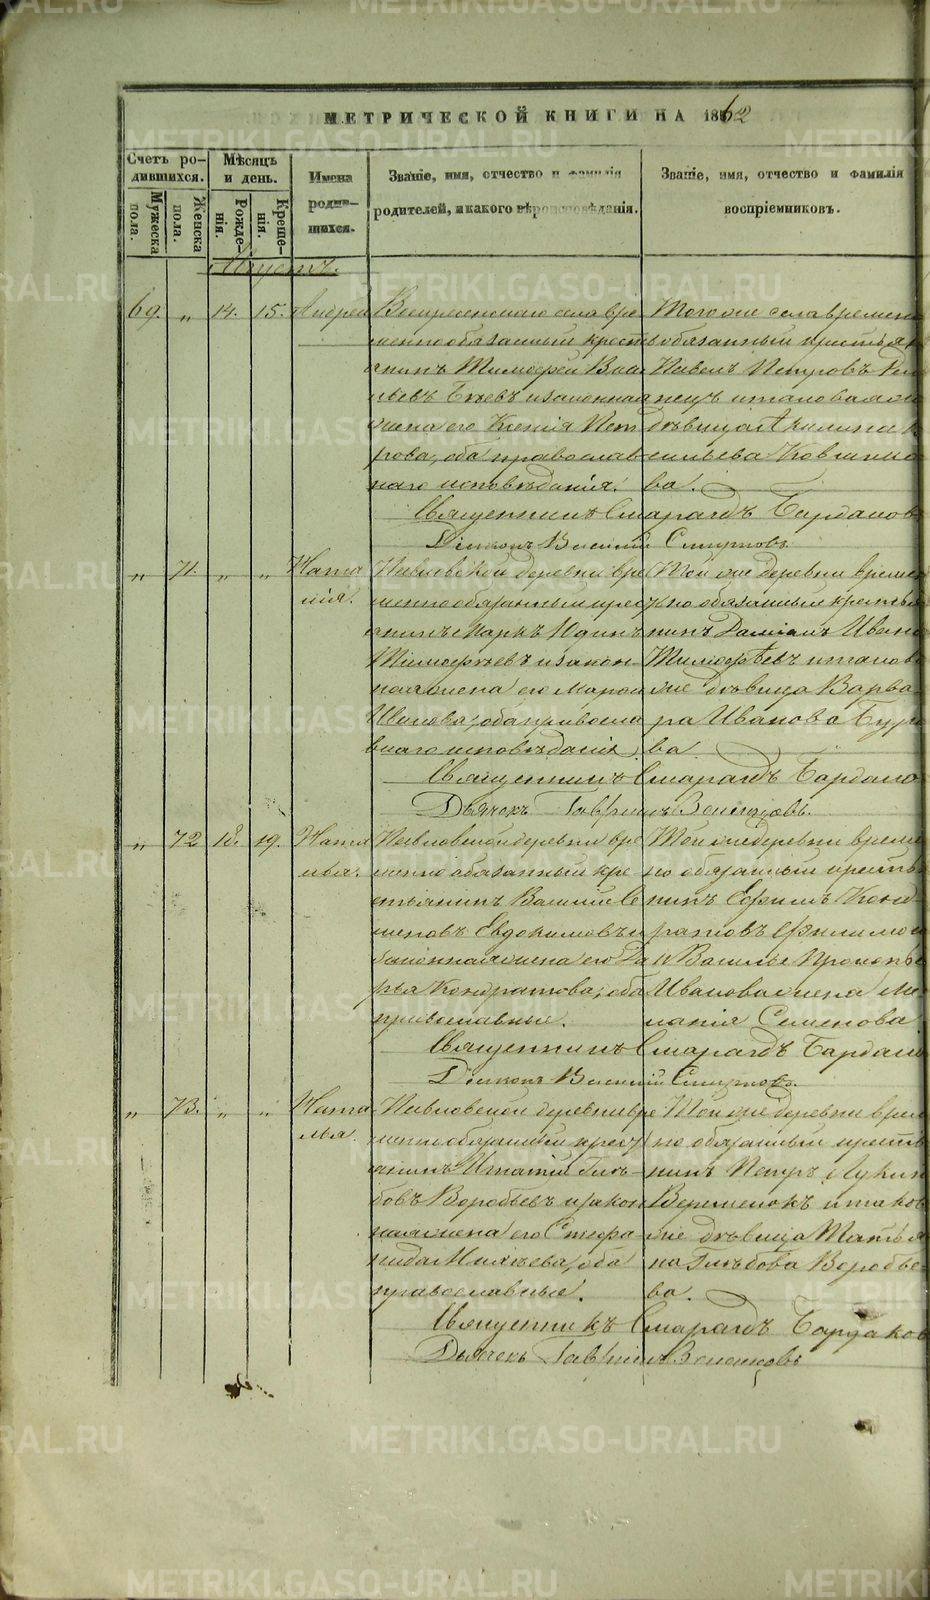 МЕТРИЧЕСКОЙ КНИГИ НА 1862
Счетъ родившихся.
Мужеска пола.
Женска пола.
Мѣсяцъ и день.
Рожденія.
Крещенія.
Имена родившихся.
Званіе, имя, отчество и фамилія родителей, и какого вѣроисповѣданія.
Званіе, имя, отчество и фамилія воспріемниковъ.
Августъ.
69. „ 14. 15. Андрей
Воскресенскаго села вре
менно обязанный крест
янинъ Тимофей Васи
льевъ и законная
жена его Ксенія Пет
рова, оба православ
наго исповѣданія.
Того же села времен
обязанный крестьян
Павелъ Петровъ
и таковая
дѣвица Акилина
сильева
ва.
Священникъ Смарагдъ Бардаковъ
Діаконъ Василій Смирновъ.
„ 71. „ „ Ната
лія.
Павловской деревни вре
менно обязанный крес
янинъ Маркъ Юдинъ
Тимофѣевъ и закон
ная жена его
Иванова, оба правосла
внаго исповѣданія
Той же деревни времен
но обязанный крестья
нинъ Даміанъ Иван
Тимофѣевъ и таков
же дѣвица Варва
ра Иванова
ва
Священникъ Смарагдъ Бардако
Дьячекъ Гавріилъ
„ 72 18. 19. Ната
лья.
Павловской деревни вре
менно обязанный кре
стьянинъ Василій Се
меновъ Евдокимовъ и
законная жена его Да
рья Кондратова, оба
православные.
Той же деревни време
но обязанный кресть
нинъ Ефимъ Конд
ратовъ
и Василье Прокопье
Иванова жена Ме
ланія Семенова
Священникъ Смарагдъ Бардако
Діаконъ Василій Смирновъ.
„ 73. „ „ Ната
лья.
Павловской деревни вре
менно обязанный крест
янинъ Игнатій Глѣ
бовъ Воробьевъ и закон
ная жена его Стефа
нида Михеева, оба
православные.
Той же деревни врем
но обязанный кресть
нинъ Петръ Лукин
и таков
же дѣвица Татья
на Глѣбова Воробье
ва.
Священникъ Смарагдъ Бардаков
Дьячекъ Гавріилъ
METRIKI.GASO-URAL.RU